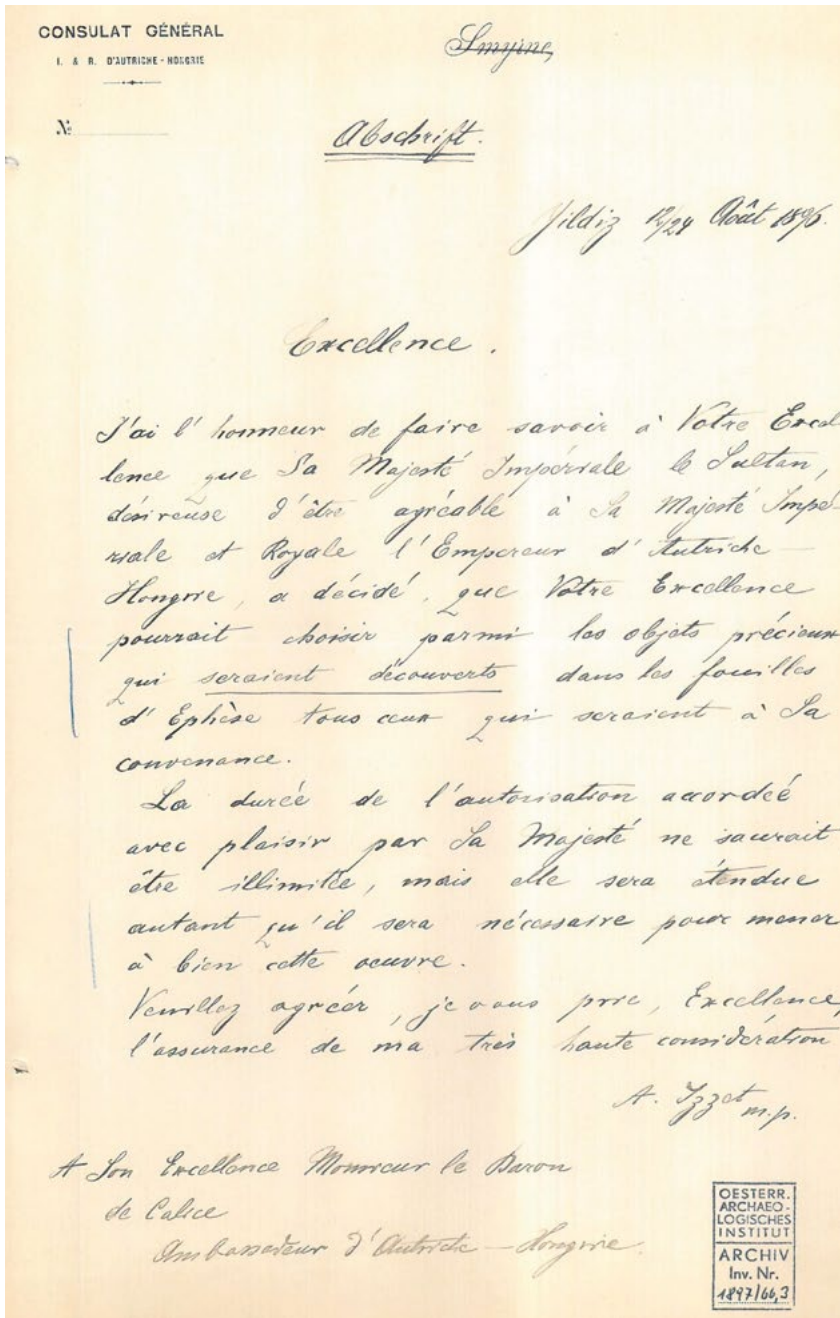 CONSULAT GÉNÉRAL
I. & R. D'AUTRICHE-HONGRIE
№
Smyrne,
Abschrift.
Yildiz 12/24 Août 1896.
Excellence.
J'ai l'honneur de faire savoir à Votre Excel
lence que Sa Majesté Impériale le Sultan,
désireuse d'être agréable à Sa Majesté Impé-
riale et Royale l'Empereur d'Autriche-
Hongrie, a décidé, que Votre Excellence
pourrait choisir parmi les objets précieux
qui seraient découverts dans les fouilles
d'Ephèse tous ceux qui seraient à Sa
convenance.
La durée de l'autorisation accordée
avec plaisir par Sa Majesté ne saurait
être illimitée, mais elle sera étendue
autant qu'il sera nécessaire pour mener
à bien cette oeuvre.
Veuillez agréer, je vous prie, Excellence,
l'assurance de ma très haute considération
A. Izzet m.p.
A Son Excellence Monsieur le Baron
de Calice
Ambassadeur d'Autriche-Hongrie.
OESTERR.
ARCHAEO-
LOGISCHES
INSTITUT
ARCHIV
Inv. Nr.
1897/66,3